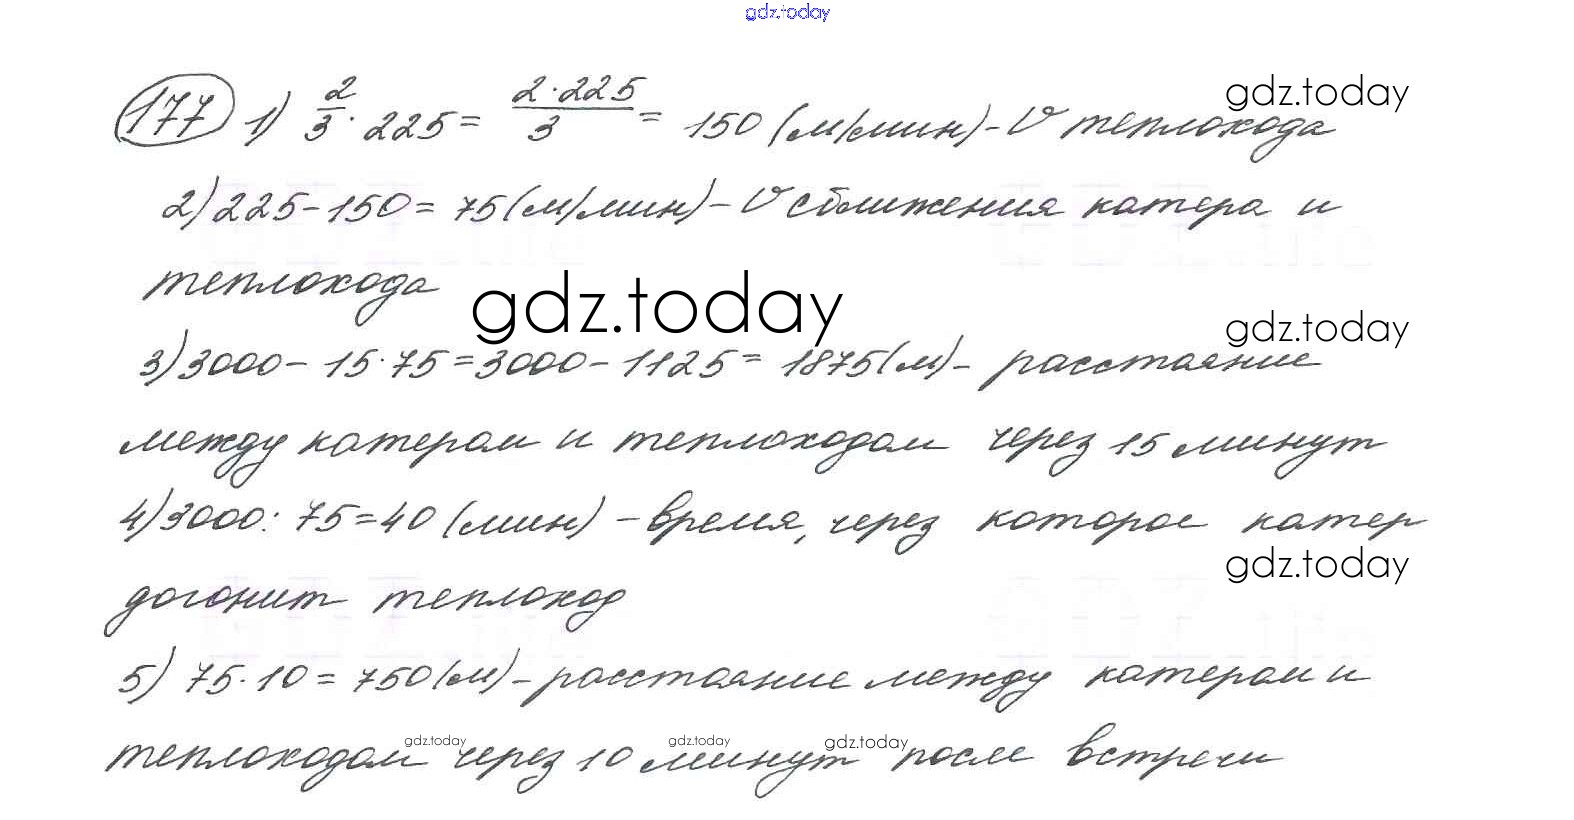 gdz.today
177 1) 2/3 · 225 = 2·225/3 = 150 (м/мин) - V теплохода
gdz.today
2) 225 - 150 = 75 (м/мин) - V сближения катера и
теплохода
gdz.today
gdz.today
3) 3000 - 15·75 = 3000 - 1125 = 1875 (м) - расстояние
между катером и теплоходом через 15 минут
4) 3000 : 75 = 40 (мин) - время, через которое катер
gdz.today
догонит теплоход
5) 75·10 = 750 (м) - расстояние между катером и
теплоходом через 10 минут после встречи
gdz.today gdz.today gdz.today